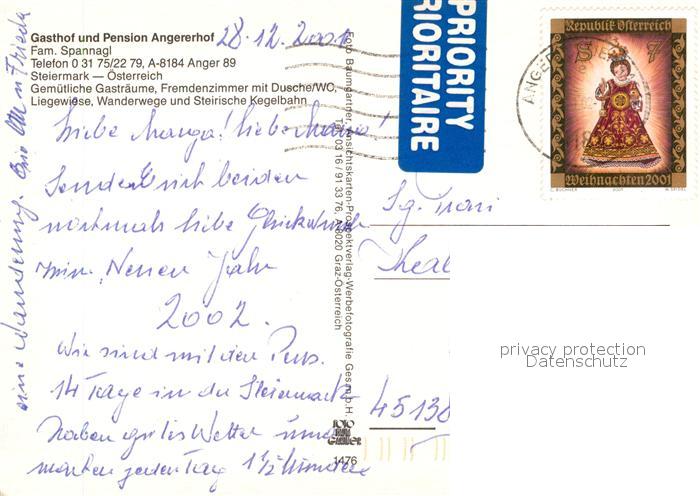 Gasthof und Pension Angererhof
Fam. Spannagl
Telefon 0 31 75/22 79, A-8184 Anger 89
Steiermark — Österreich
Gemütliche Gasträume, Fremdenzimmer mit Dusche/WC,
Liegewiese, Wanderwege und Steirische Kegelbahn
28.12.2001
Liebe Manga! Liebe
Sende Euch beiden
nochmals liebe Glückwünsche
zum Neuen Jahr
2002.
Wir sind mit den Pens.
14 Tage in der Steiermark
Haben gutes Wetter und
machen jeden Tag 1 1/2 Stunden
eine Wanderung. Eure Otto u Frieda
Foto Baumgartner, Ansichtskarten-Prospektverlag-Werbefotografie Ges.m.b.H.
Tel. 03 16 / 91 33 76, A-8020 Graz-Österreich
1476
PRIORITY
PRIORITAIRE
ANGER
Republik Österreich
S 7
Weihnachten 2001
2001
Sg. Frau
45130
privacy protection
Datenschutz